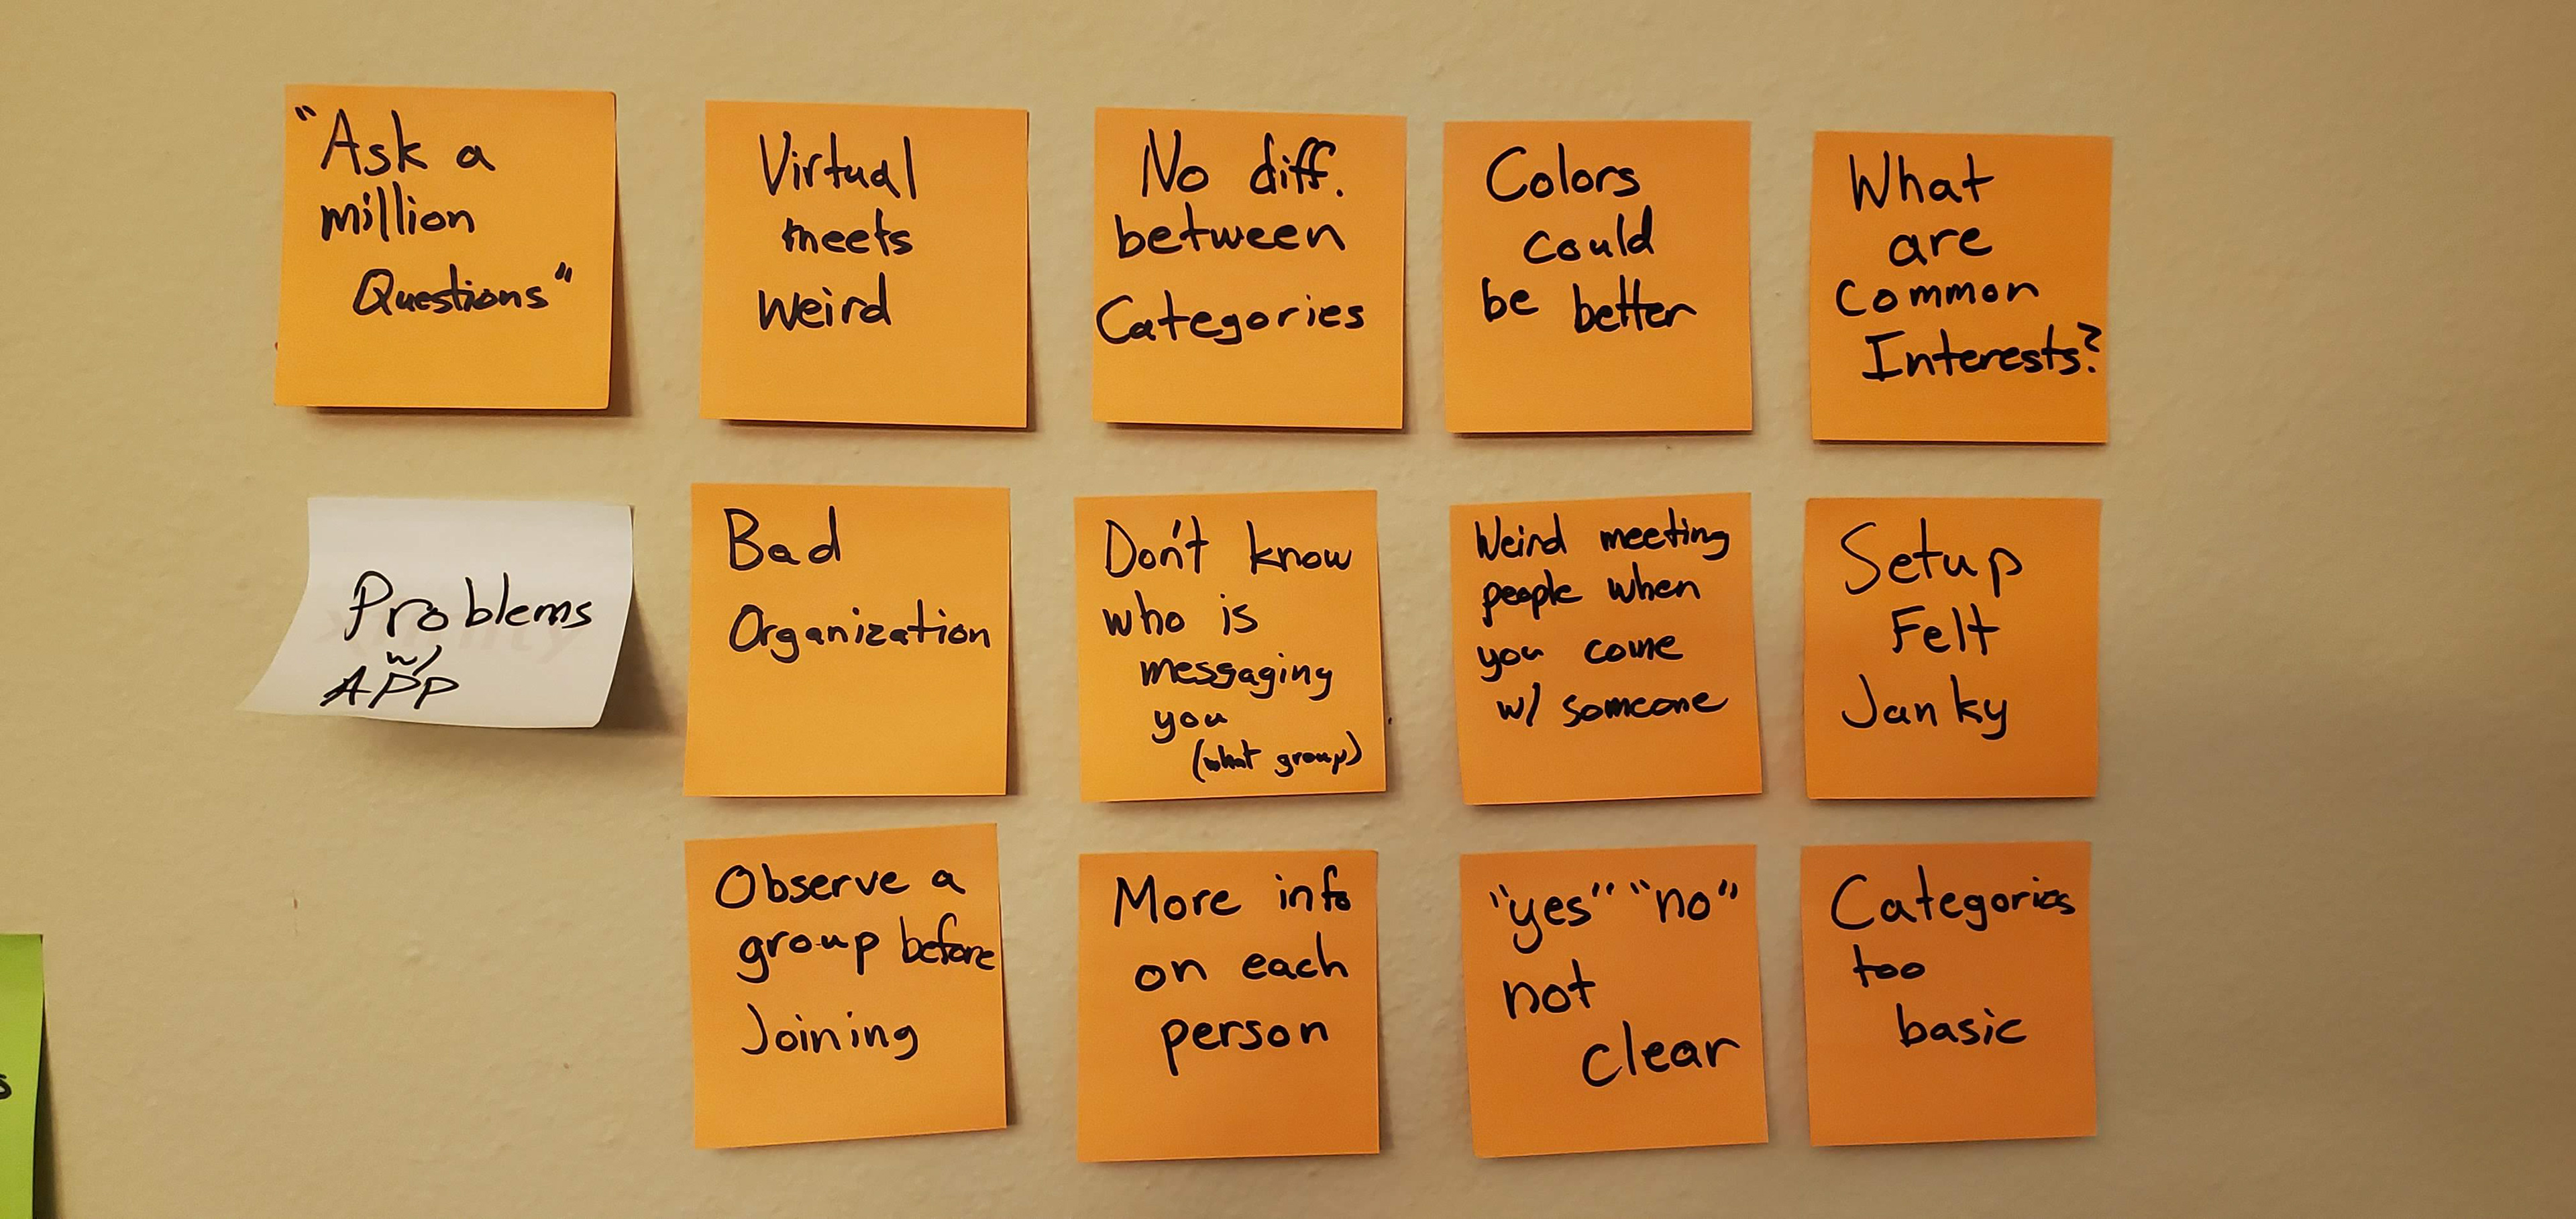 "Ask a
million
Questions"
Virtual
meets
weird
No diff.
between
Categories
Colors
could
be better
What
are
Common
Interests?
Problems
w/
APP
Bad
Organization
Don't know
who is
messaging
you
(what group)
Weird meeting
people when
you come
w/ someone
Setup
Felt
Janky
Observe a
group before
Joining
More info
on each
person
"yes" "no"
not
clear
Categories
too
basic